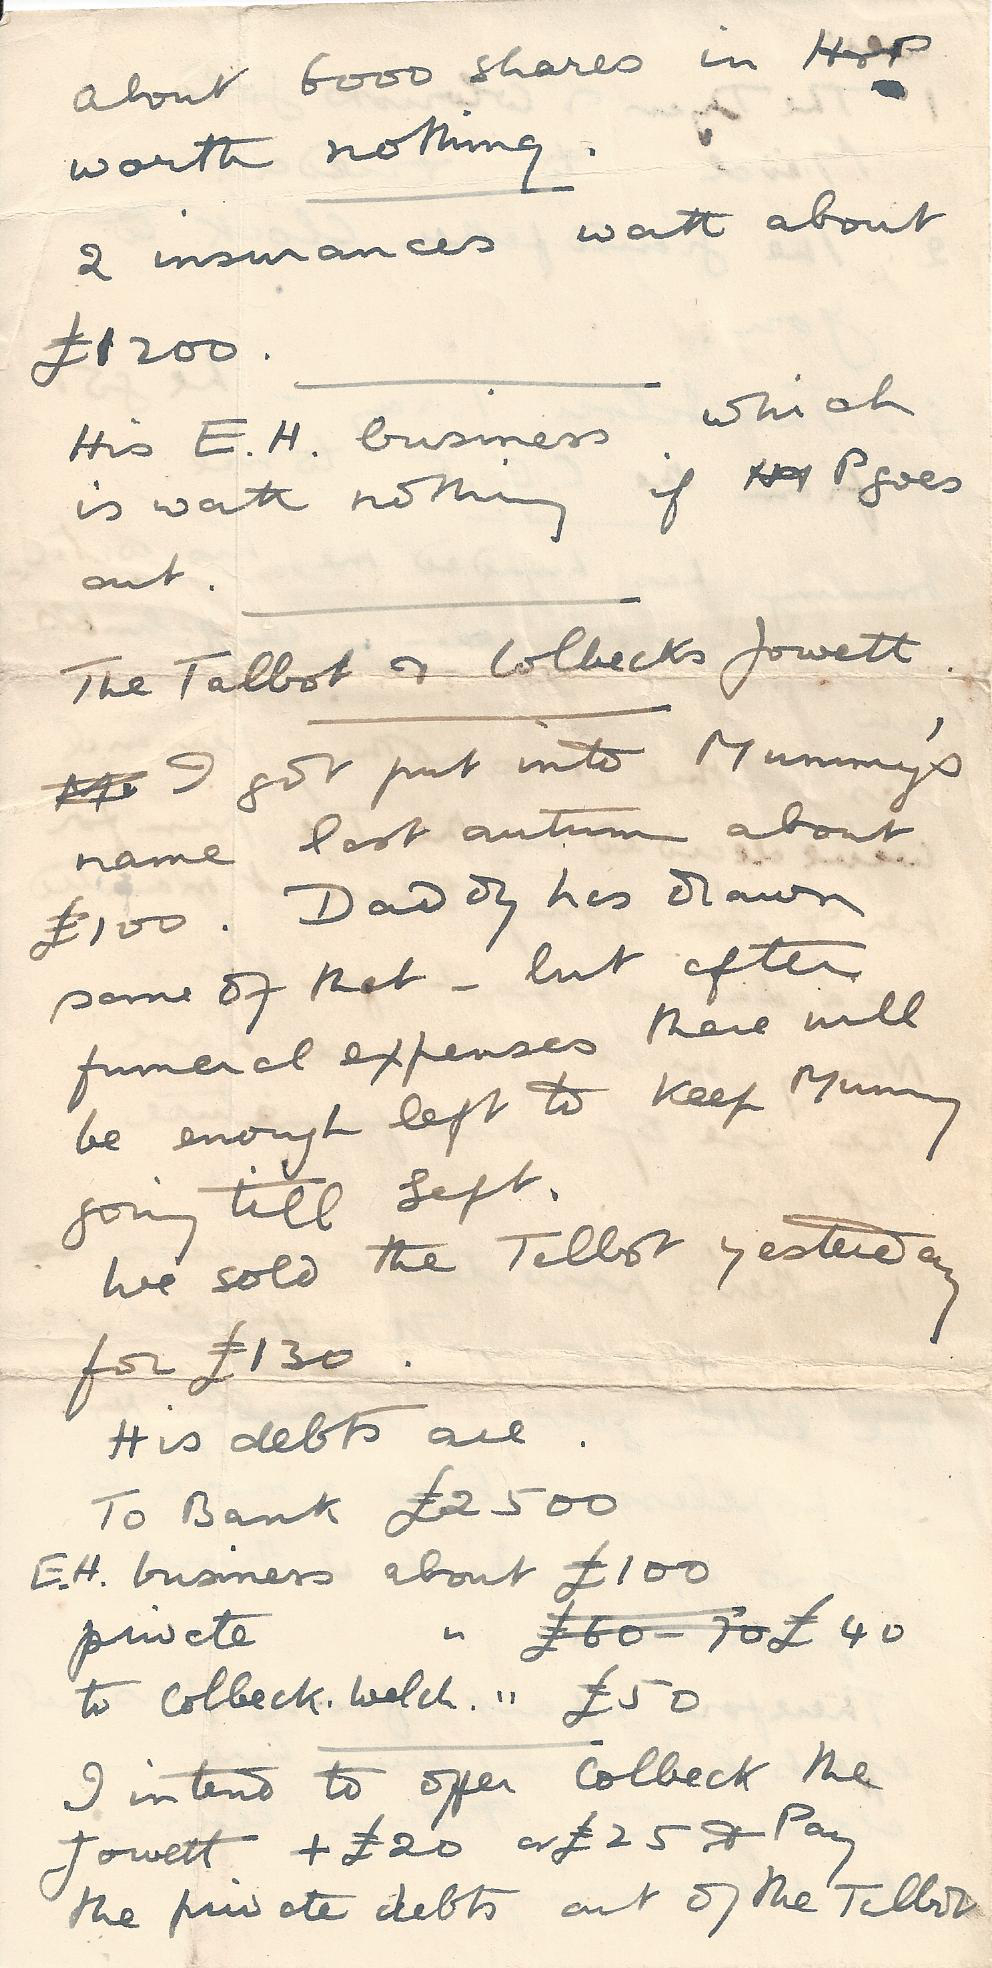 about 6000 shares in H&P
worth nothing.
2 insurances worth about
£1200.
His E.H. business which
is worth nothing if P goes
out.
The Talbot & Colbecks Jowett.
I got put into Mummy's
name last autumn about
£100. Daddy has drawn
some of that - but after
funeral expenses there will
be enough left to keep Mummy
going till Sept.
We sold the Talbot yesterday
for £130.
His debts are.
To Bank £2500
E.H. business about £100
private " £60-70 £40
to Colbeck. Welch. " £50
I intend to offer Colbeck the
Jowett + £20 or £25 & Pay
the private debts out of the Talbot